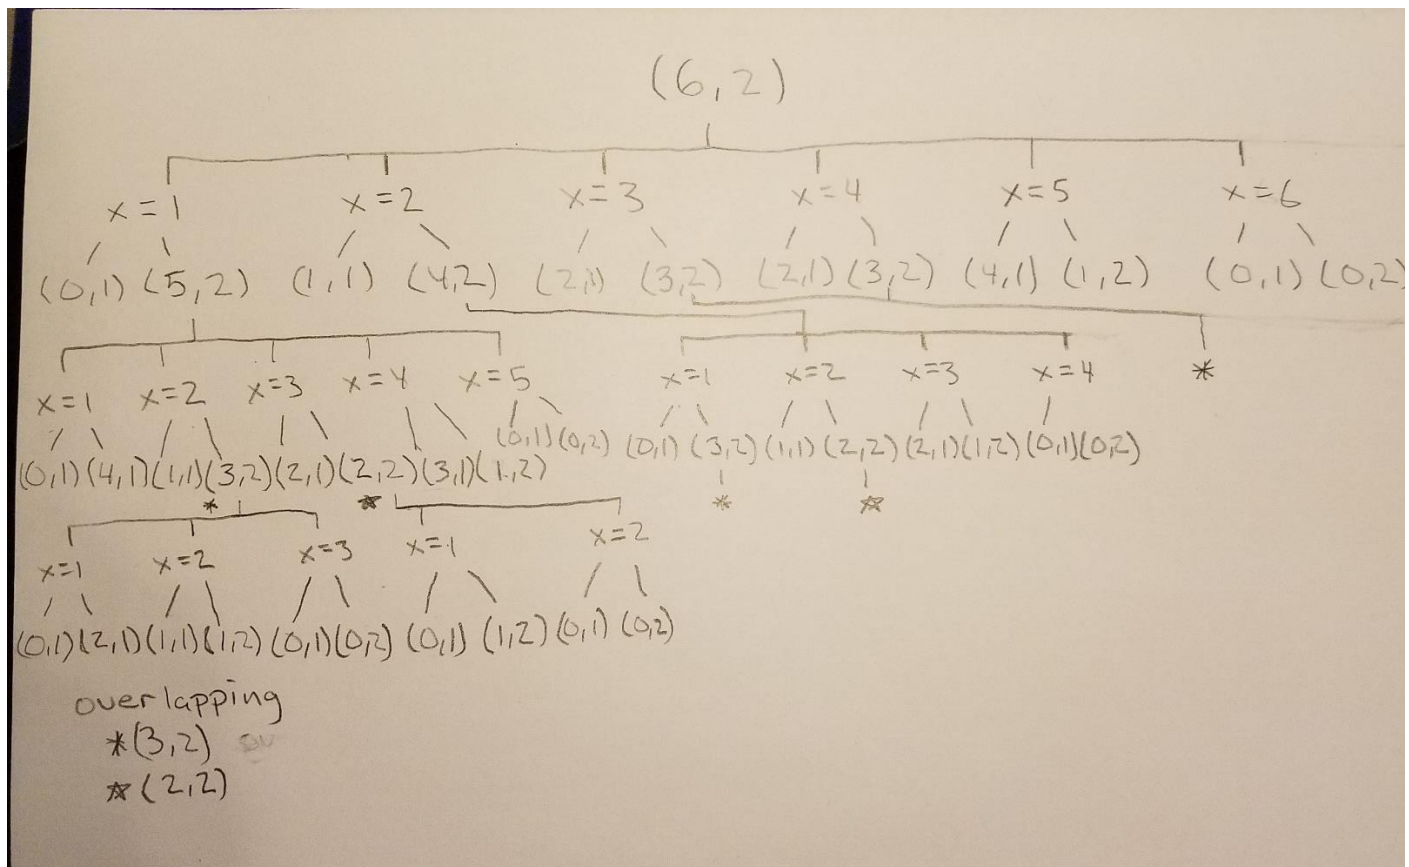 (6,2)
x=1 x=2 x=3 x=4 x=5 x=6
(0,1) (5,2) (1,1) (4,2) (2,1) (3,2) (2,1) (3,2) (4,1) (1,2) (0,1) (0,2)
x=1 x=2 x=3 x=4 x=5 x=1 x=2 x=3 x=4 *
(0,1) (4,1) (1,1) (3,2) (2,1) (2,2) (3,1) (1,2) (0,1) (0,2) (0,1) (3,2) (1,1) (2,2) (2,1) (1,2) (0,1) (0,2)
* ☆ * ☆
x=1 x=2 x=3 x=1 x=2
(0,1) (2,1) (1,1) (1,2) (0,1) (0,2) (0,1) (1,2) (0,1) (0,2)
overlapping
*(3,2)
☆(2,2)